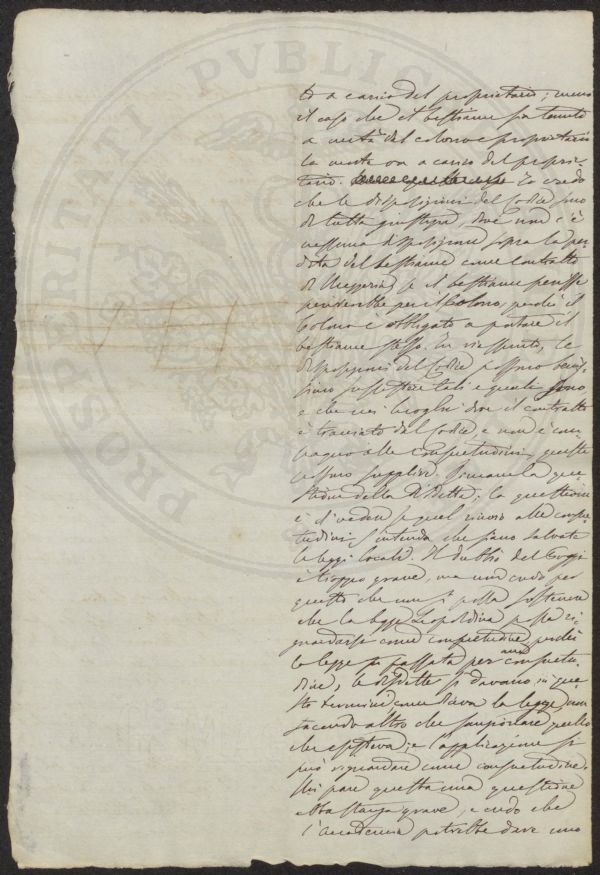 PROSPERITATI PVBLIC
è a carico del proprietario; meno
il caso che il bestiame sia tenuto
a metà dal colono e proprietario
la metà a carico del proprie-
tario. Io credo
che le disposizioni del Codice sono
di tutta giustizia, dove non c'è
nessuna disposizione sopra la per
dita del bestiame come contratto
di Mezzeria se il bestiame perisse
perirebbe per il Colono, perchè il
Colono è obbligato a portare il
bestiame stesso. In riassunto, le
disposizioni del Codice possono benis-
simo sussistere tali e quali sono
e che nei luoghi dove il contratto
è tracciato dal Codice e non è con
alle consuetudini, queste
possono supplire. Rimane la que
stione della Disdetta; la questione
è di vedere se quel rinvio alle consue
tudini s'intenda che sono salvate
le leggi locali. Il dubbio del Poggi
è troppo grave, ma non credo per
questo che non si possa sostenere
che la legge Leopoldina possa ri-
guardarsi come consuetudine, perchè
la legge fu passata per consuetu
dine, le disdette si davano in que
sto termine come diceva la legge non
facendo altro che sanzionare quello
che esisteva; e l'applicazione si
può riguardare come consuetudine.
Mi pare questa una questione
abbastanza grave, e credo che
l'Accademia potrebbe dare uno